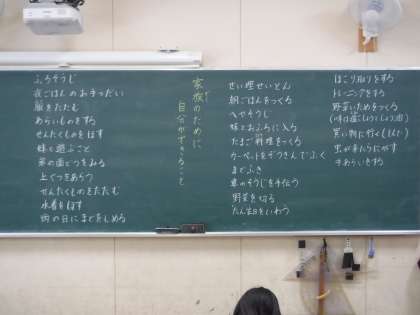 ふろそうじ
夜ごはんのお手つだい
服をたたむ
あらいものをする
せんたくものをほす
妹と遊ぶこと
弟の面どうをみる
上ぐつをあらう
せんたくものをたたむ
水着をほす
雨の日にまどをしめる
家族のために
自分ができること
せい理せいとん
朝ごはんをつくる
へやそうじ
妹とおふろに入る
たまご料理をつくる
カーペットをぞうきんでふく
まどふき
車のそうじを手伝う
野菜を切る
たん生日をいわう
ほこり取りをする
トレーニングをする
野菜いためをつくる
買い物に行く
虫が来たらにがす
手あらいをする